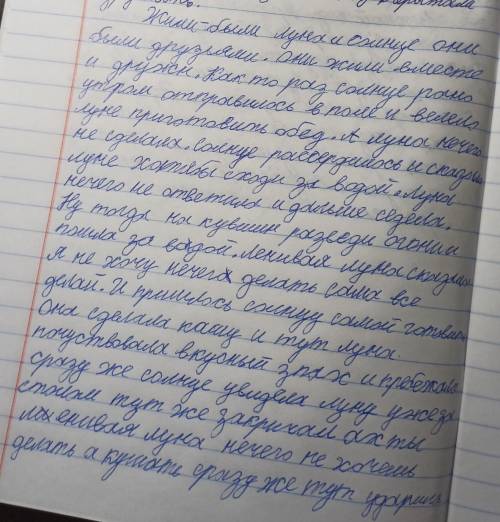 Жили-были луна и солнце они
были друзьями. они жили вместе
и дружен. Как то раз солнце рано
утром отправилось в поле и велело
луне приготовить обед. А луна нечего
не сделала. солнце рассердилось и сказало
луне хотябы сходи за водой. Луна
нечего не ответила и дальше седела.
Ну тогда на кувшин разведи огонь и
пошла за водой. Ленивая луна сказала
я не хочу нечего делать сама все
делай. И пришлось солнцу самой готовить
Она сделала кашу и тут луна.
почуствовала вкусный запах и пребежала
сразу же солнце увидела луну уже за
столом тут же закричал ах ты
ленивая луна нечего не хочешь
делать а кушать сразу же тут ударила